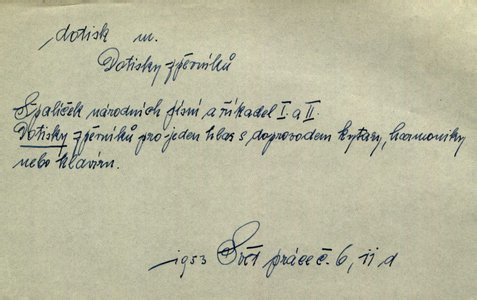 dotisk m.
Dotisky zpěvníků
Špalíček národních písní a říkadel I. a II.
Dotisky zpěvníků pro jeden hlas s doprovodem kytary, harmoniky
nebo klavíru.
1953 Svět práce č. 6, 11 d